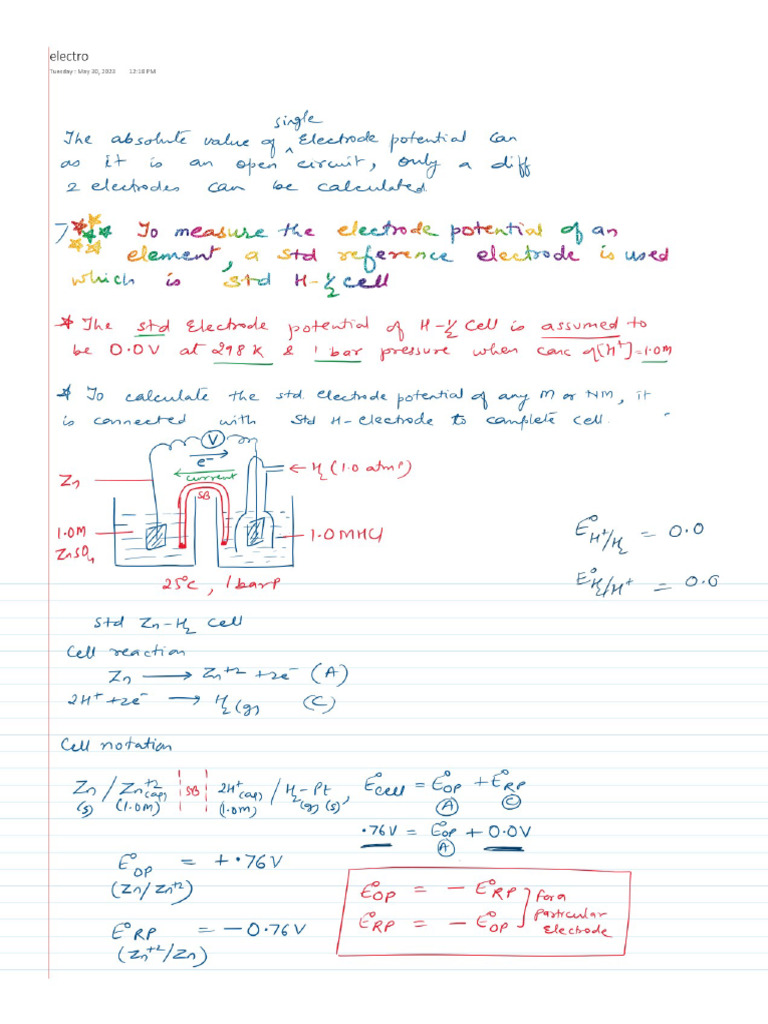 electro
Tuesday : May 30, 2023 12:18 PM
single
The absolute value of ^ Electrode potential can
as it is an open circuit, only a diff
2 electrodes can be calculated.
To measure the electrode potential of an
element, a std reference electrode is used
which is std H-½ cell
* The std Electrode potential of H-½ Cell is assumed to
be 0.0V at 298K & 1 bar pressure when conc of [H⁺]=1.0M
* To calculate the std. electrode potential of any M or NM, it
is connected with std H-electrode to complete cell.
V
e⁻
current
Zn
SB
← H₂ (1.0 atmP)
1.0M
ZnSO₄
1.0MHCl
25°C, 1 barP
E°H⁺/H₂ = 0.0
E°H₂/H⁺ = 0.0
Std Zn-H₂ cell
Cell reaction
Zn → Zn⁺² +2e⁻ (A)
2H⁺+2e⁻ → H₂(g) (C)
Cell notation
Zn / Zn⁺²(aq) | SB | 2H⁺(aq) / H₂-Pt, E°cell = E°OP + E°RP
(s) (1.0M) (1.0M) (g) (s) (A) (C)
.76V = E°OP + 0.0V
(A)
E°OP = +.76V
(Zn/Zn⁺²)
E°RP = -0.76V
(Zn⁺²/Zn)
E°OP = - E°RP
E°RP = - E°OP
for a
particular
electrode